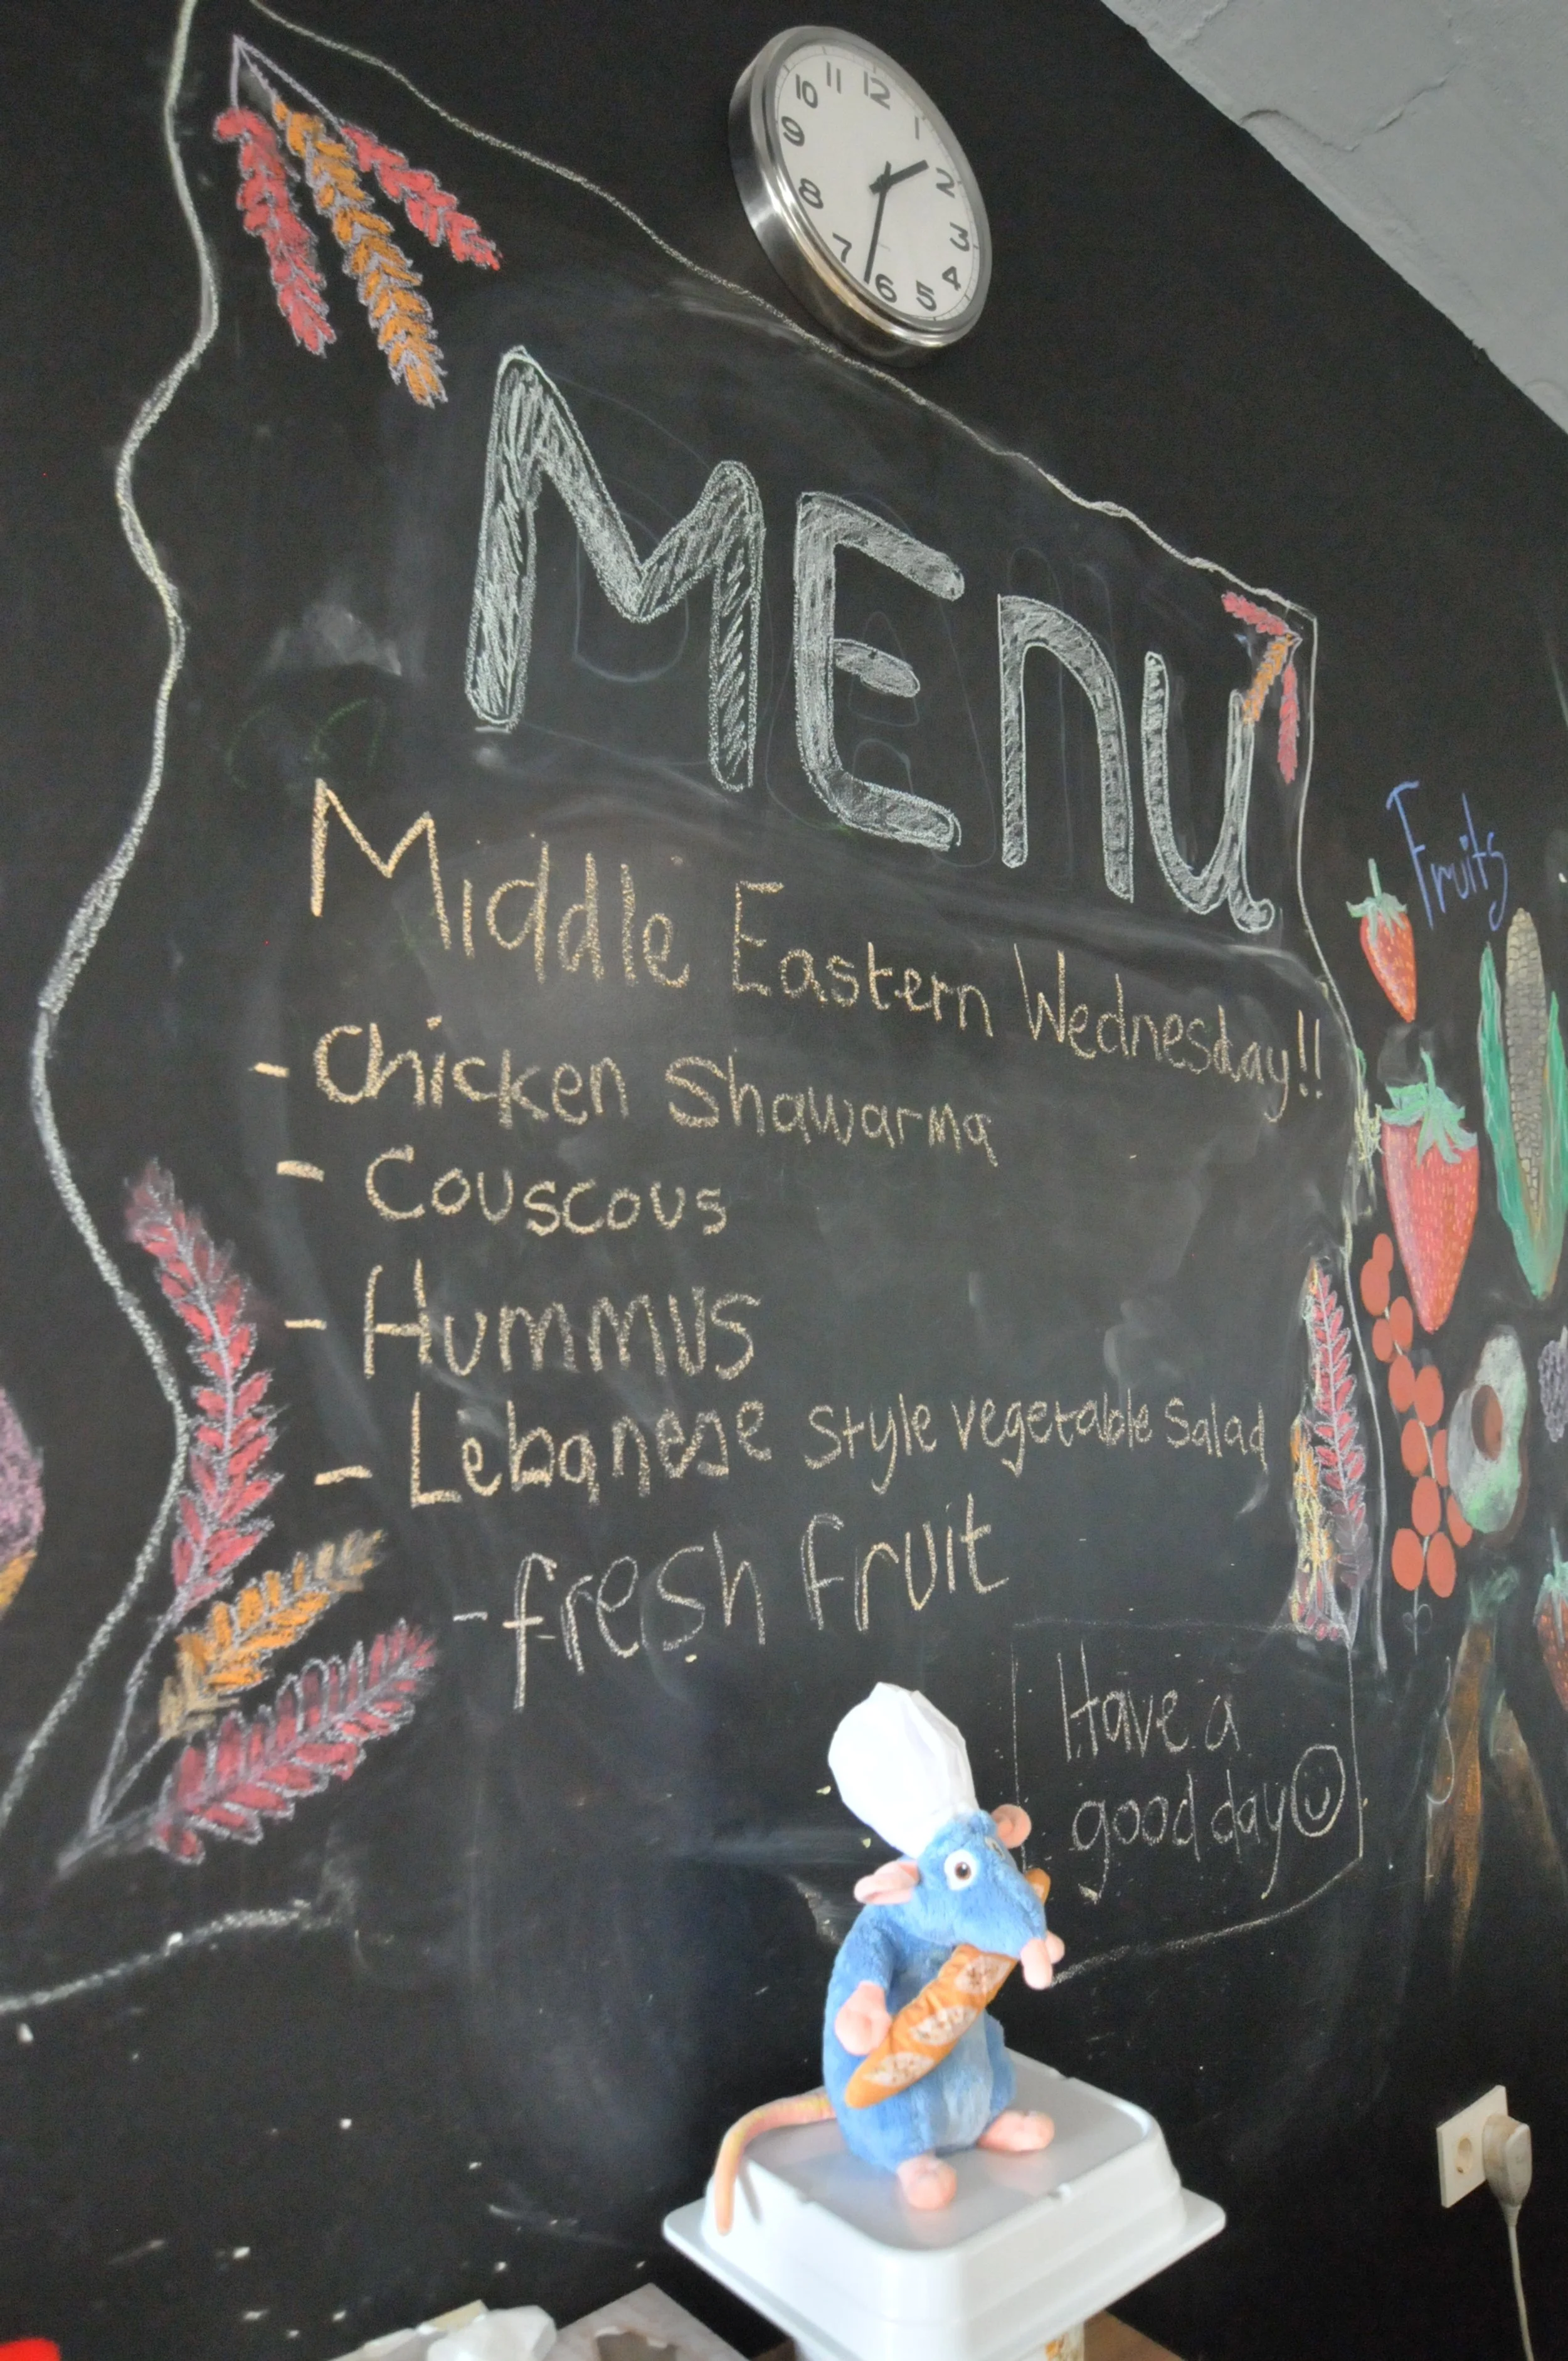 12
1
2
3
4
5
6
7
8
9
10
11
MEnu
Middle Eastern Wednesday!!
- Chicken Shawarma
- Couscous
- Hummus
- Lebanese style vegetable Salad
- fresh fruit
Have a
good day
Fruits